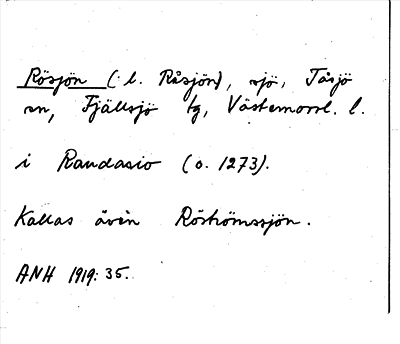 Rösjön (: l. Råsjön), sjö, Tåsjö
sn, Fjällsjö tg, Västernorrl. l.
i Randasio (o. 1273).
Kallas även Röströmssjön.
ANH 1919: 35.